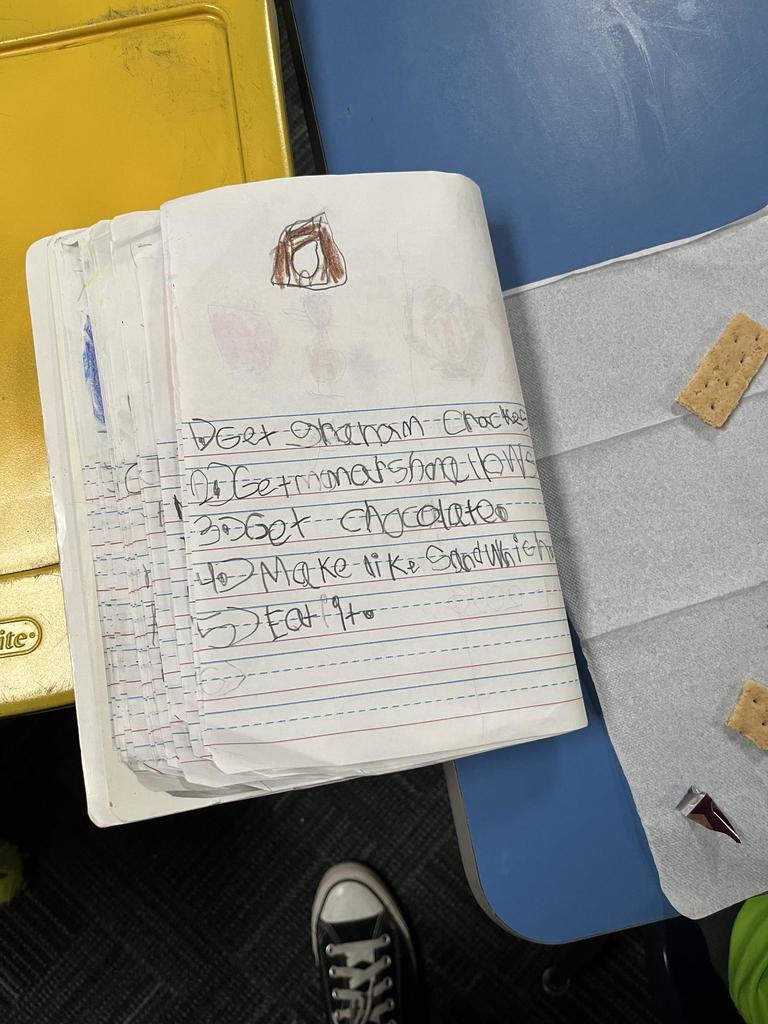 1.) Get graham crackes
2.) Get marshmellows
3.) Get chocolate.
4.) Make like Sandwhich
5.) Eat it.
ite